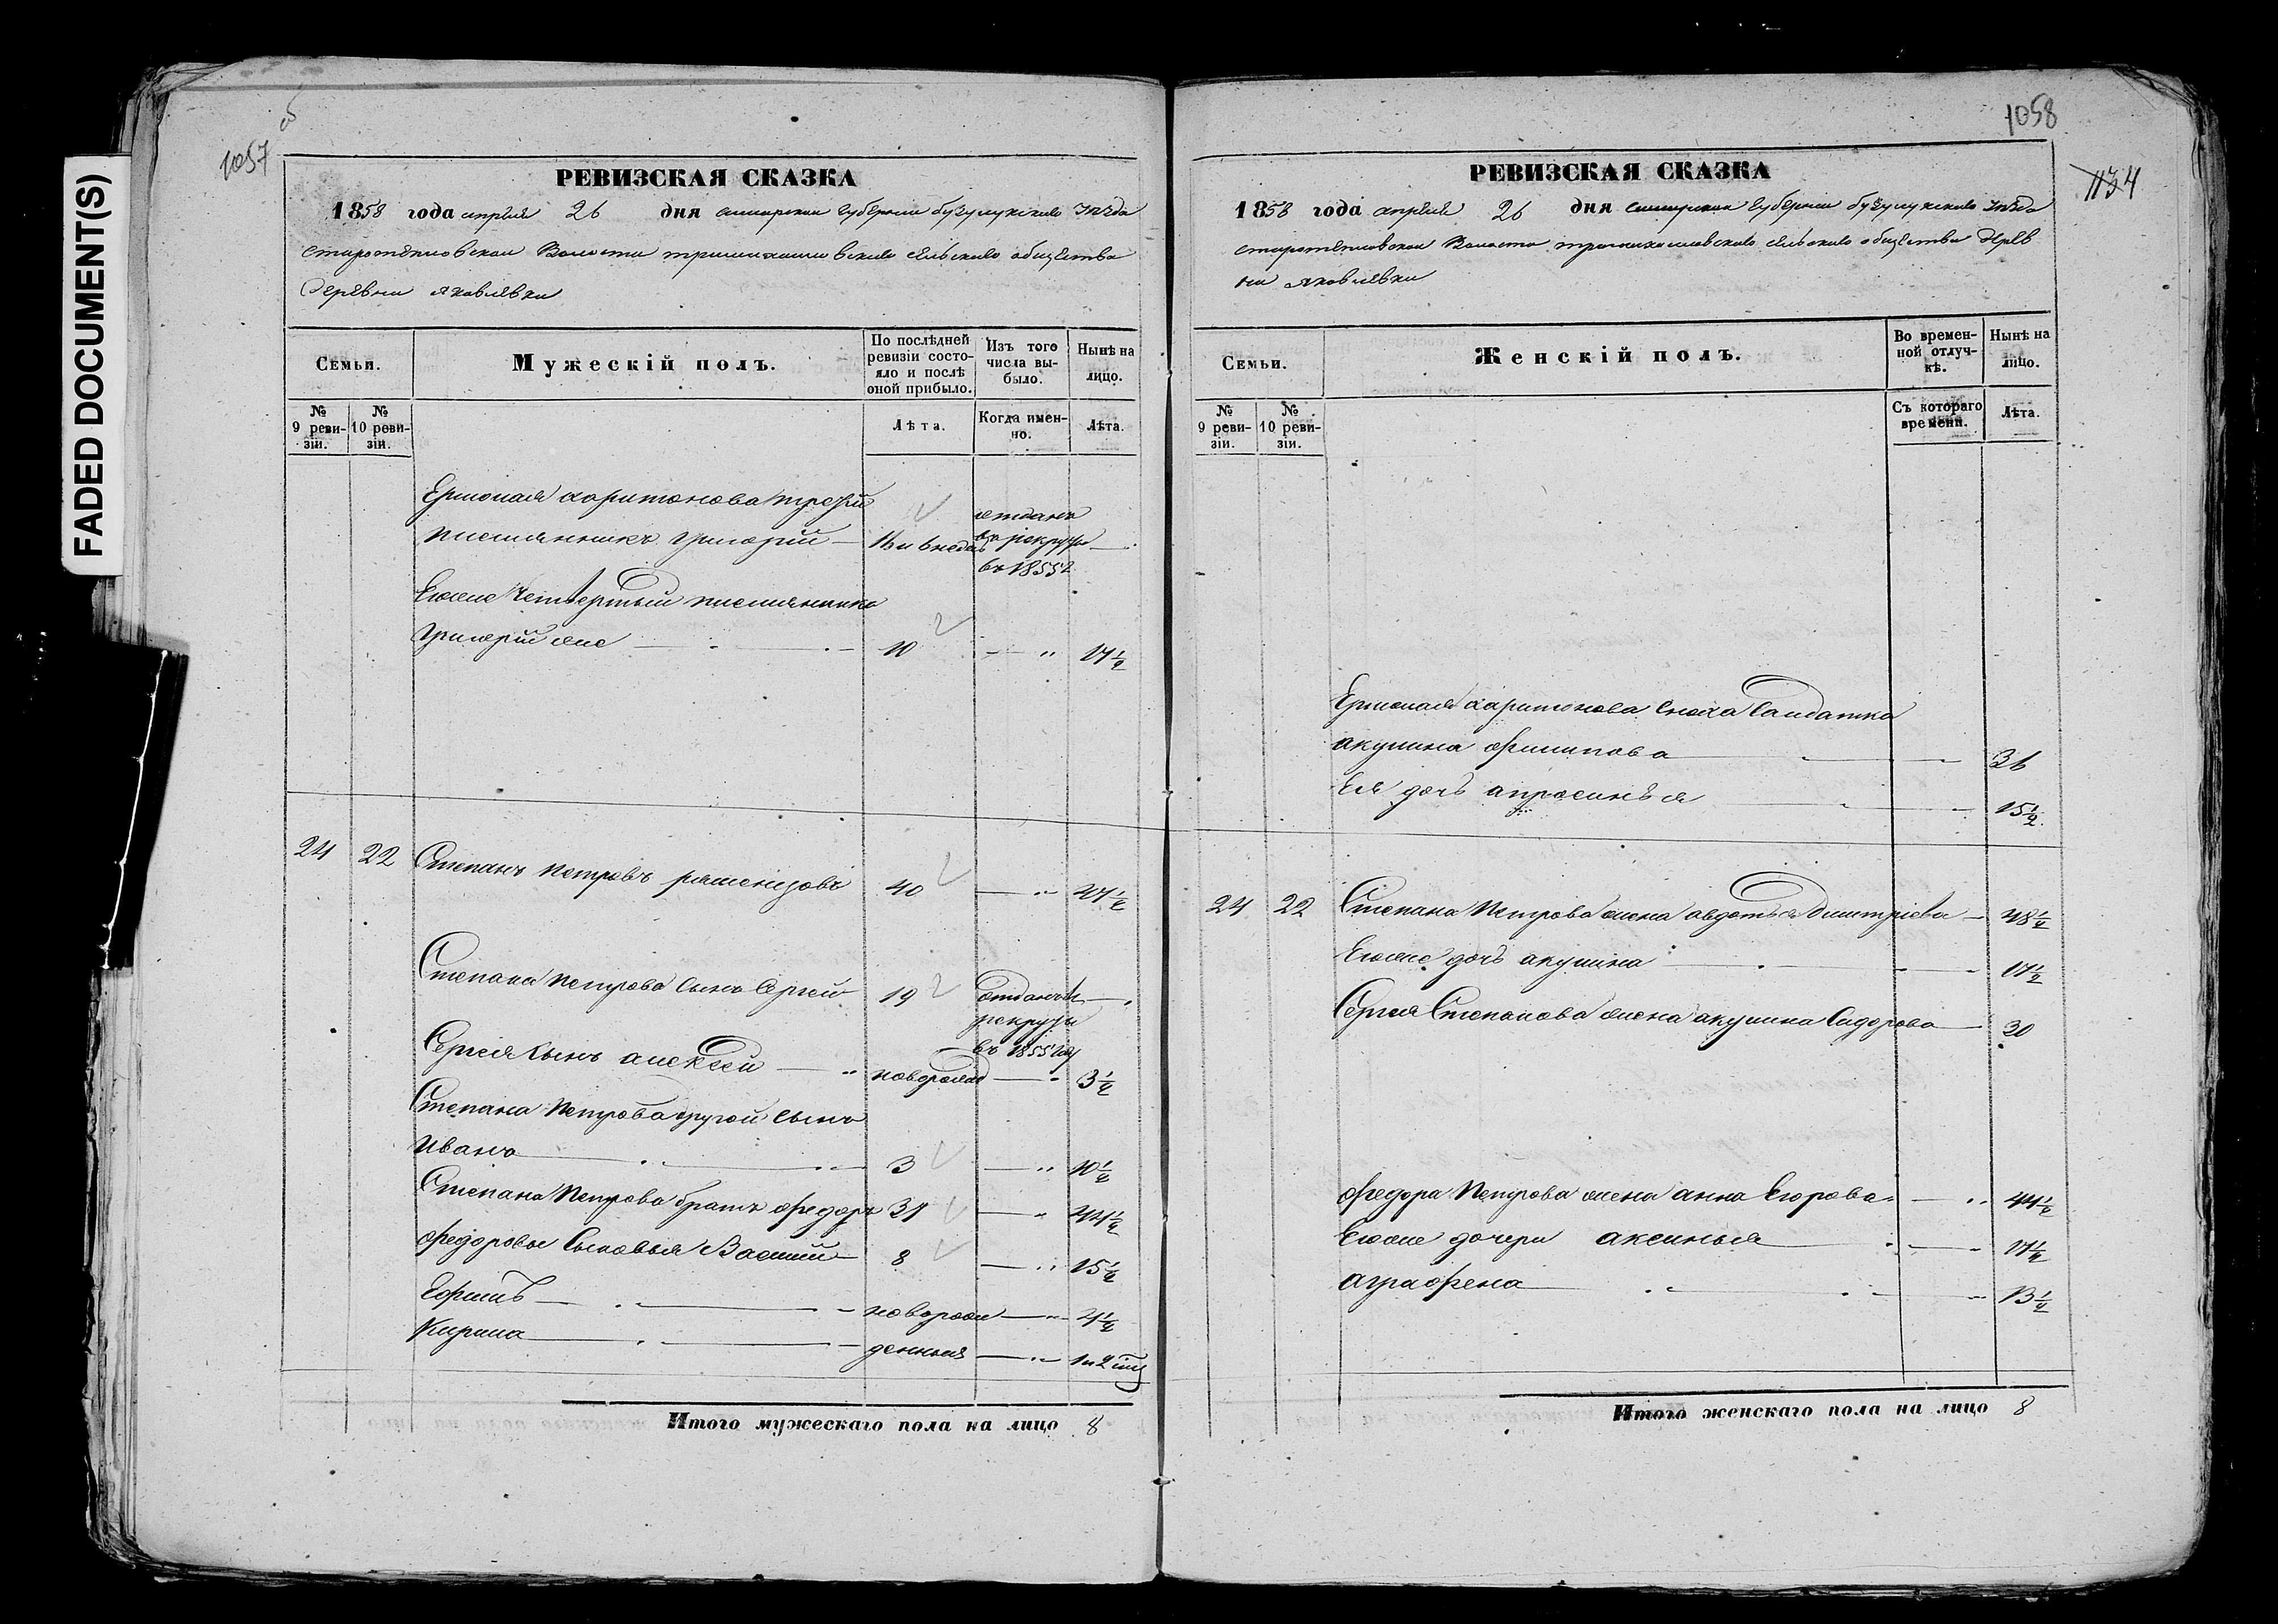 FADED DOCUMENT(S)
1057 об
РЕВИЗСКАЯ СКАЗКА
1858 года апреля 26 дня самарской губернии бузулукского уѣзда
старотепловской Волости трышихаиловского сельского общества
Деревни яковлевки
Семьи.
Мужескій полъ.
По послѣдней ревизіи состояло и послѣ оной прибыло.
Изъ того числа выбыло.
Нынѣ на лицо.
№ 9 ревизіи.
№ 10 ревизіи.
Лѣта.
Когда именно.
Лѣта.
Ермолая харитонова третій
племянникъ григорій 16 и 6 недел отданъ в рекруты въ 1855 г
Егоже четвертый племянникъ
григорій же 10 17½
24 22 Степанъ петровъ 40 47½
Степана петрова сынъ Сергей 19 отданъ в рекруты въ 1855 году
Сергея сынъ алексей новорожд 3½
Степана петрова другой сынъ
Иванъ 3 10½
Степана петрова братъ федоръ 37 44½
федоровы сыновья Василий 8 15½
Ефимъ новорож 4½
Кирила денныя 1 и 2 мц
Итого мужескаго пола на лицо 8
1058
1134
РЕВИЗСКАЯ СКАЗКА
1858 года апреля 26 дня самарской губернии бузулукского уѣзда
старотепловской Волости сельского общества дерев
ни яковлевки
Семьи.
Женскій полъ.
Во временной отлучкѣ.
Нынѣ на лицо.
№ 9 ревизіи.
№ 10 ревизіи.
Съ котораго времени.
Лѣта.
Ермолая харитонова сноха Салдатка
акулина филипова 36
Ея дочь апросинья 15½
24 22 Степана петрова жена авдотья дмитріева 48½
Егоже дочь акулина 17½
Сергея Степанова жена акулина Сидорова 30
федора петрова жена анна Егорова 44½
Егоже дочери аксинья 17½
аграфена 13½
Итого женскаго пола на лицо 8